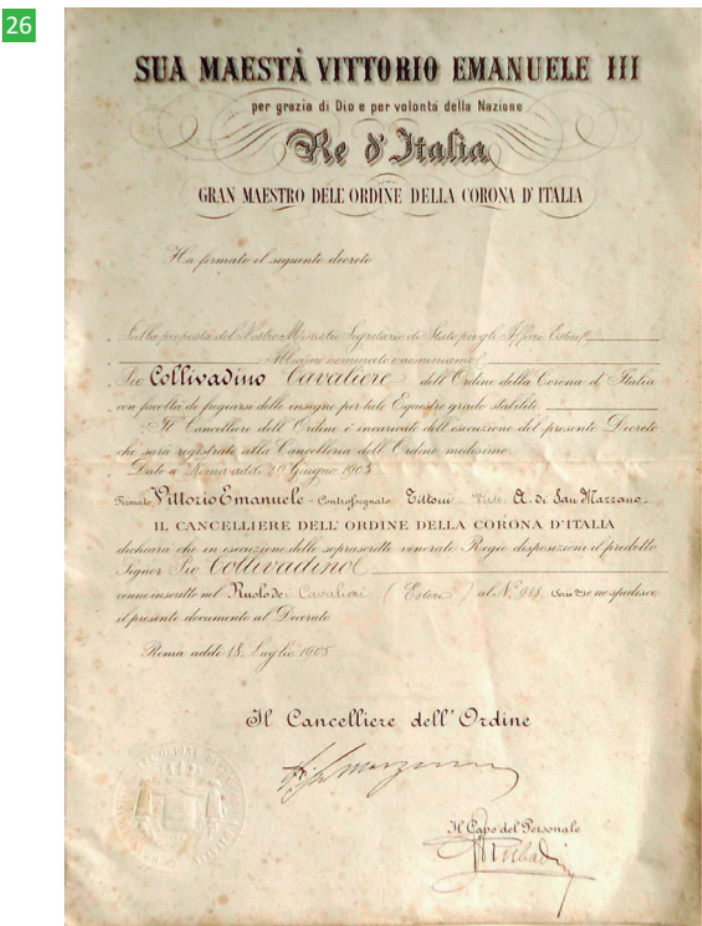 26
SUA MAESTÀ VITTORIO EMANUELE III
per grazia di Dio e per volontà della Nazione
Re d'Italia
GRAN MAESTRO DELL'ORDINE DELLA CORONA D'ITALIA
Ha firmato il seguente decreto
Sulla proposta del Nostro Ministro Segretario di Stato per gli Affari Esteri
Abbiamo nominato e nominiamo
Pio Collivadino Cavaliere dell'Ordine della Corona d'Italia
con facoltà di fregiarsi delle insegne per tale Equestre grado stabilite.
Il Cancelliere dell'Ordine è incaricato dell'esecuzione del presente Decreto
che sarà registrato alla Cancelleria dell'Ordine medesimo.
Dato a Roma addì Giugno 1905
Firmato Vittorio Emanuele - Controssegnato Tittoni Visto A. di San Marzano.
IL CANCELLIERE DELL'ORDINE DELLA CORONA D'ITALIA
dichiara che in esecuzione delle soprascritte venerate Regie disposizioni il predetto
Signor Pio Collivadino
venne inscritto nel Ruolo dei Cavalieri (Esteri) al N.º 988 Serie e ne spedisce
il presente documento al Decorato
Roma addì 18 Luglio 1905
Il Cancelliere dell'Ordine
Il Capo del Personale